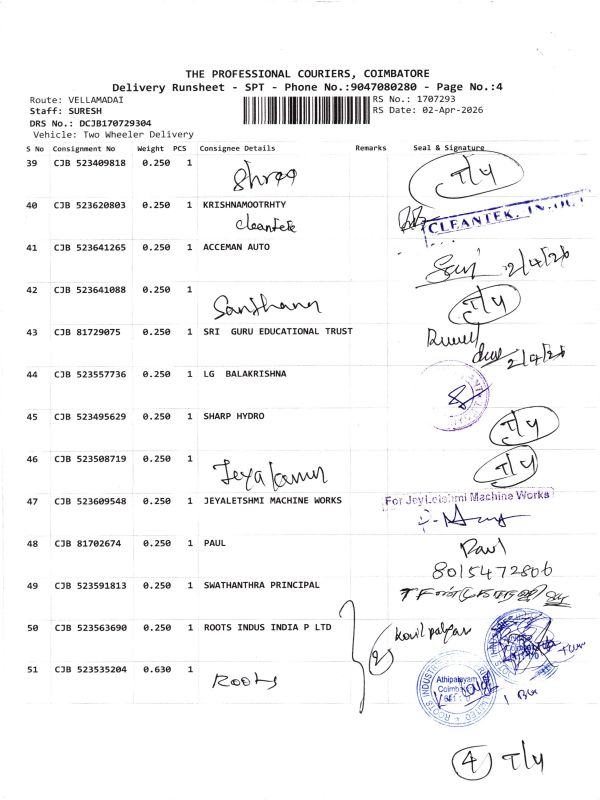 THE PROFESSIONAL COURIERS, COIMBATORE
Delivery Runsheet - SPT - Phone No.:9047080280 - Page No.:4
Route: VELLAMADAI RS No.: 1707293
Staff: SURESH RS Date: 02-Apr-2026
DRS No.: DCJB170729304
Vehicle: Two Wheeler Delivery
S No Consignment No Weight PCS Consignee Details Remarks Seal & Signature
39 CJB 523409818 0.250 1 Shree T/4
40 CJB 523620803 0.250 1 KRISHNAMOOTRHTY
Cleantek CLEANTEK
41 CJB 523641265 0.250 1 ACCEMAN AUTO
2/4/26
42 CJB 523641088 0.250 1 T/4
43 CJB 81729075 0.250 1 SRI GURU EDUCATIONAL TRUST
2/4/26
44 CJB 523557736 0.250 1 LG BALAKRISHNA
45 CJB 523495629 0.250 1 SHARP HYDRO T/4
46 CJB 523508719 0.250 1 Jeyakumar T/4
47 CJB 523609548 0.250 1 JEYALETSHMI MACHINE WORKS For JeyLetshmi Machine Works
48 CJB 81702674 0.250 1 PAUL Paul
8015472806
49 CJB 523591813 0.250 1 SWATHANTHRA PRINCIPAL
50 CJB 523563690 0.250 1 ROOTS INDUS INDIA P LTD
2
51 CJB 523535204 0.630 1 Roots
Athipalayam
4 T/4